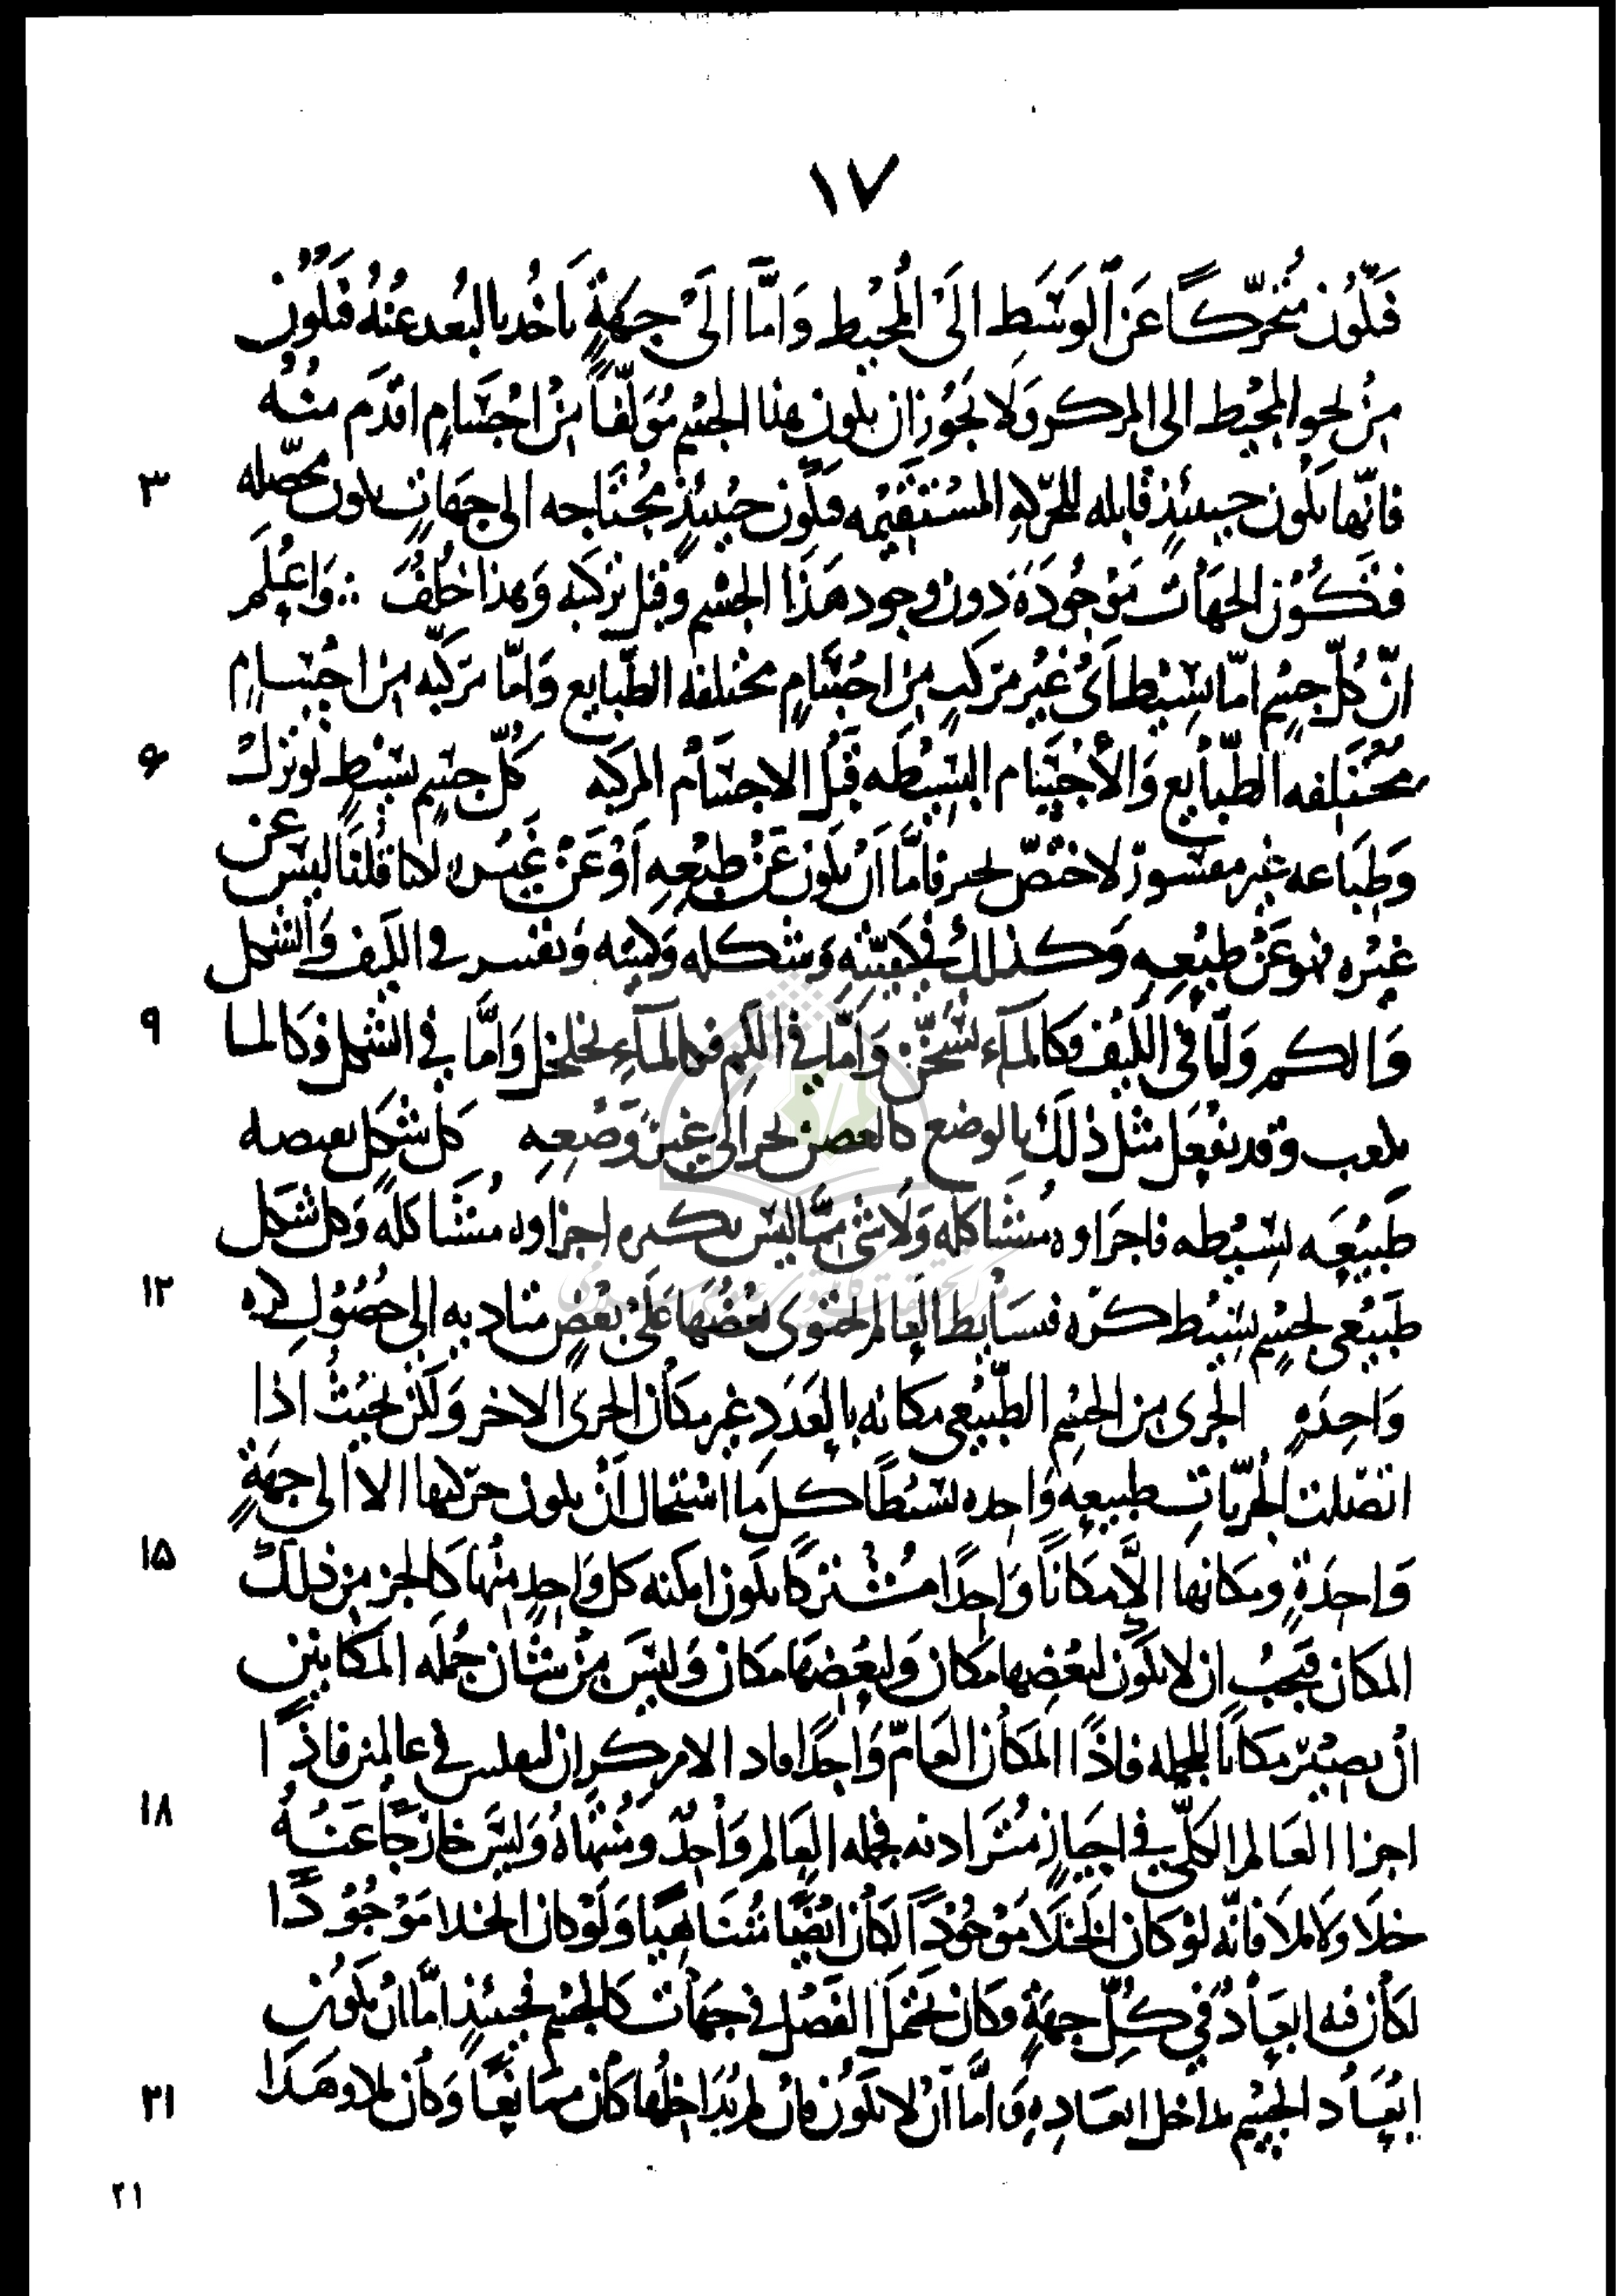 ١٧
فَيَكُون مُتَحَرّكًا عَن الوَسَط الَى المُحيْط وَامَّا الَىْ جِهَةٍ يَاخُد بالبُعد عَنْهُ فَيَكُون
مِن نحو المُحيْط الى المركز وَلا يَجُوز ان يكون هذا الجسْم مُؤلَّفاً مِنْ اجْسَامٍ اقدَم مِنْهُ
فانّها تكُون حينئذٍ قابله للحَرَكهِ المُسْتَقيْمه فيكُون حيْنئذٍ مُحْتَاجه الى جهَاتٍ يكون محَصّله
٣
فتكُوْن الجهَات مَوْجُودَة دون وجود هَذَا الجسْم وَقبل تركّبه وَهذا خُلْفُ ∴ وَاعْلَم
انّ كُلّ جسْمٍ امّا بَسِيْط اَىْ غَيْر مركبٍ مِن اجْسَامٍ مختلفه الطّبايع وَامّا مرَكّبه مِن اجْسَامٍ
مُختَلفه الطّبايع وَالاجْسَام البَسِيْطَه قبْل الاجسَام المركبه كُلّ جسْمٍ بَسيْطٍ لو ترك
۶
وَطِبَاعه غير مقسُور لاختصّ بحيز فامَّا اَنْ يكون عَنْ طبْعِهِ اَوْ عَنْ غَيْره لانا قُلنَا ليس عن
غيْره فهو عَنْ طبْعِهِ وَكذلك في كيفيّتِهِ وَشكله وَكميّته وَنفسر في الكيف وَالشكل
وَالكم وَامّا فِى الكَيْف فكَالمَآء تسَخّن وَامّا فى الكَم فكالمَآءِ تخلخل وَامَّا فِي الشكل فكَالما
٩
يكعب وقد يفْعَل مثل ذلك بالوضع كالغصن يجر الى غير وَضْعِهِ كل شكل يقتضيه
طَبيْعَه بَسيْطه فاجزاوه مُتَشاكله وَلا شئ مَّا ليْسَ بكره اجزاوه مُتَشاكلَه وَكل شكل
طَبيْعي لجسْمٍ بَسيْط كره فبسَايط العَالم يحتوى بَعْضُهَا عَلَى بَعْضٍ متاديه الى حُصُول كره
١٢
وَاحِدَهٍ الجزئ مِن الجسْم الطّبيْعي مكانه بالعَدَد غير مكَان الجزئ الاخر وَلكن بحَيْثُ اذا
اتّصَلت الجزئيّات طبيعه وَاحِده بَسيْطًا كل ما اسْتحال اَنْ يكون حرَكتها الا الى جِهَةٍ
وَاحِدَةٍ ومكانها الاَّ مكَانًا وَاحِدًا مُشْتركًا يكون امكنه كل وَاحِدٍ مِنْها كَالجز مِن ذلك
١۵
المكَان فيَجبُ ان لا يكُون لبَعْضِها مكَان وَلبعْضِهَا مكان وَليْسَ مِنْ شَان جُمْلَه المكَانيْن
انْ يصِيْر مكَانًا للجمله فاذًا المكَان العَامّ وَاحِدًا فاذ الا مركزان لثقيلين في عالمين فاذًا
اجزا العَالم الكلّي فِي احيَازٍ مُترَادفه فجمله العَالم وَاحِدٌ ومُتنَاهٍ وَليْسَ خَارجًا عَنْهُ
١٨
خلَا وَلا مَلا فانّه لوْ كان الخَلَا مَوْجُوْدًا لكان ايْضًا مُتناهيًا وَلَوْ كان الخلا مَوْجُوْدًا
لكان فيه ابعَاد في كُلّ جِهَةٍ وكان يحْتمل الفَصْل في جهَات كَالجسْم فحينئذٍ امَّا انْ يكُون
ابْعَاد الجسْم يداخل ابعَادِهِ وَامَّا اَنْ لا يكُون فان لم يُدَاخلْها كان ممَانعًا وَكان ملا وهَذَا
٢١
٢١